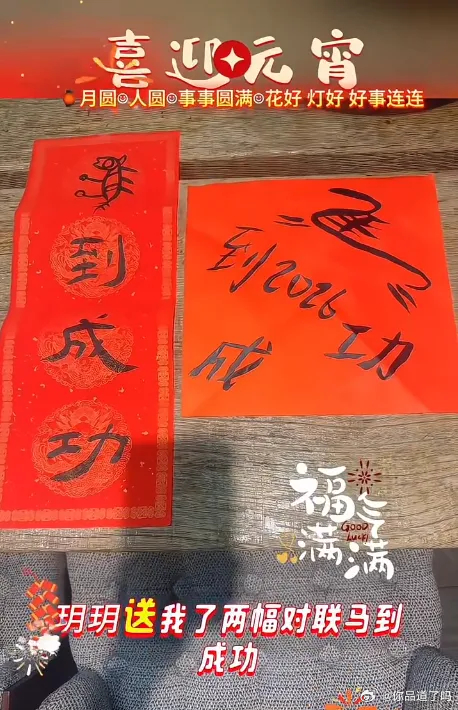 喜迎元宵
月圆人圆事事圆满花好 灯好 好事连连
到
成
功
到 2026
成 功
福气
满满
GOOD LUCK
玥玥送我了两幅对联马到
成功
@你品道了吗